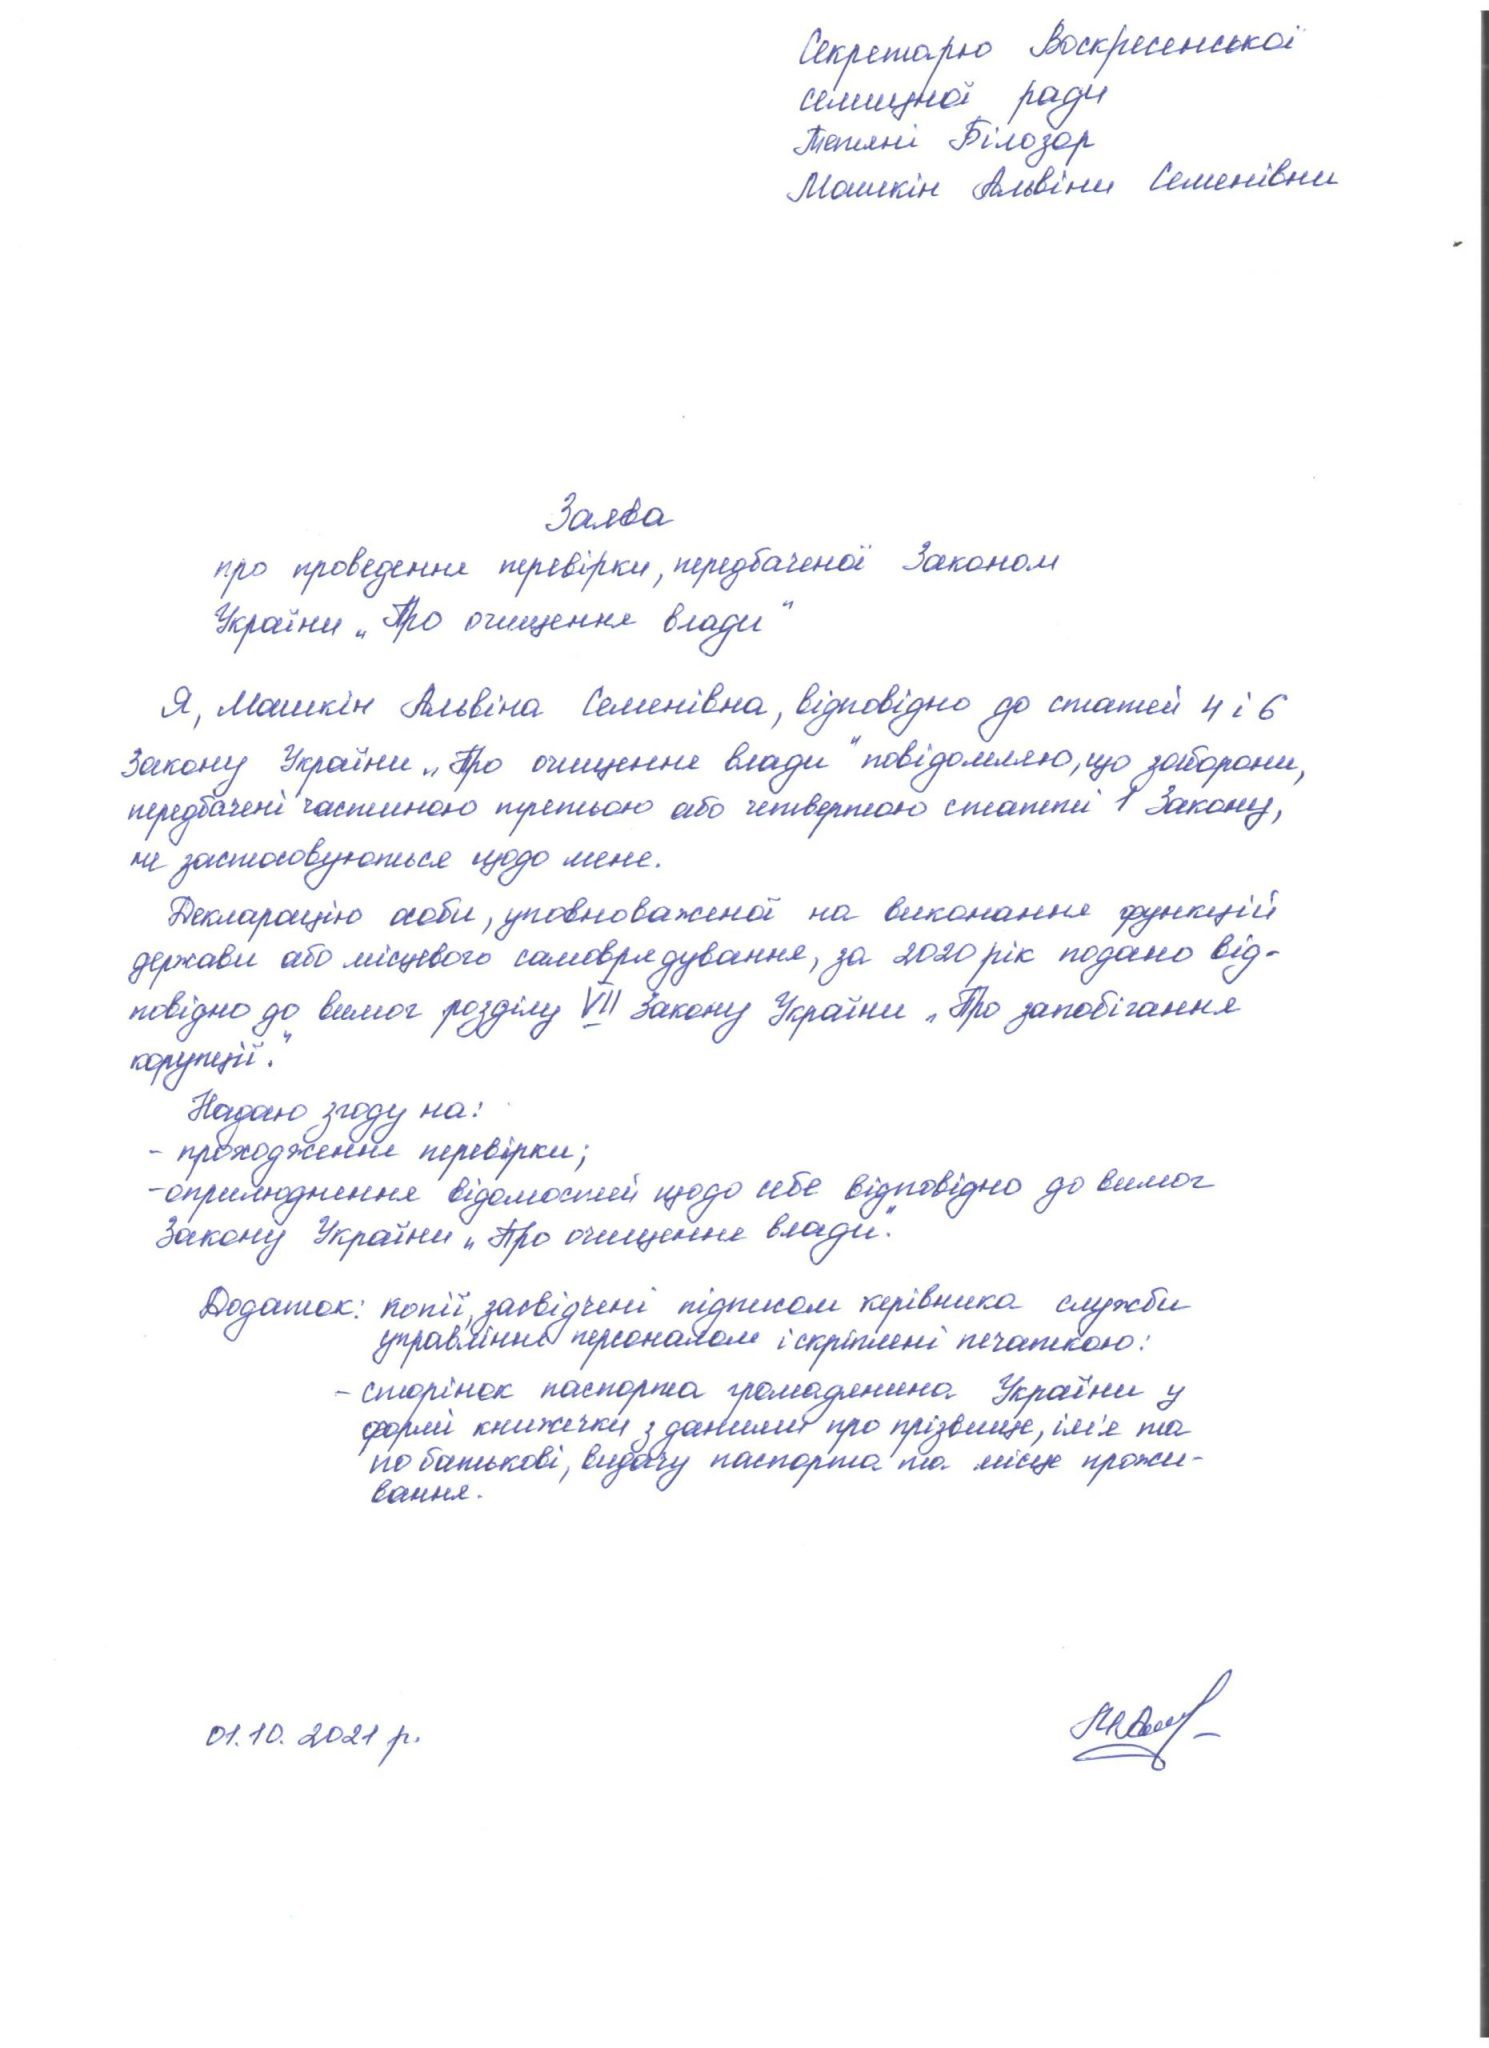 Секретарю Воскресенської
селищної ради
Тетяні Білозор
Машкін Альвіни Семенівни
Заява
про проведення перевірки, передбаченої Законом
України „Про очищення влади"
Я, Машкін Альвіна Семенівна, відповідно до статей 4 і 6
Закону України „Про очищення влади" повідомляю, що заборони,
передбачені частиною третьою або четвертою статті 1 Закону,
не застосовуються щодо мене.
Декларацію особи, уповноваженої на виконання функцій
держави або місцевого самоврядування, за 2020 рік подано від-
повідно до вимог розділу VII Закону України „Про запобігання
корупції."
Надаю згоду на:
- проходження перевірки;
- оприлюднення відомостей щодо себе відповідно до вимог
Закону України „Про очищення влади".
Додаток: копії, засвідчені підписом керівника служби
управління персоналом і скріплені печаткою:
- сторінок паспорта громадянина України у
формі книжечки з даними про прізвище, ім'я та
по батькові, видачу паспорта та місце прожи-
вання.
01.10.2021 р.